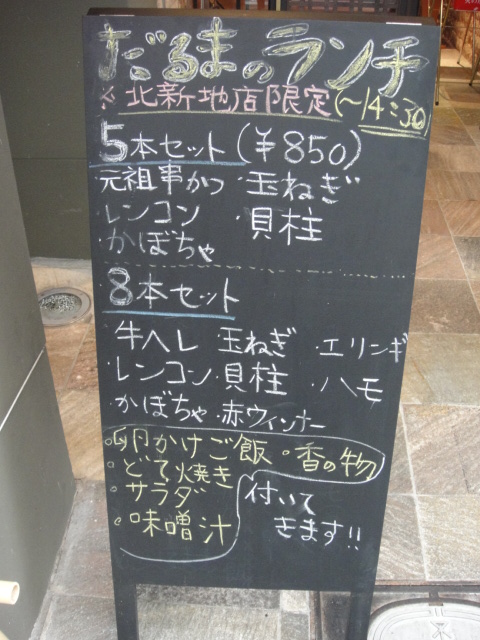 だるまのランチ
※北新地店限定(〜14:30)
5本セット(¥850)
元祖串かつ・玉ねぎ
・レンコン・貝柱
・かぼちゃ
8本セット
牛ヘレ 玉ねぎ・エリンギ
・レンコン・貝柱・ハモ
・かぼちゃ・赤ウィンナー
・卵かけご飯・香の物
・どて焼き
・サラダ
・味噌汁
付いて
きます!!